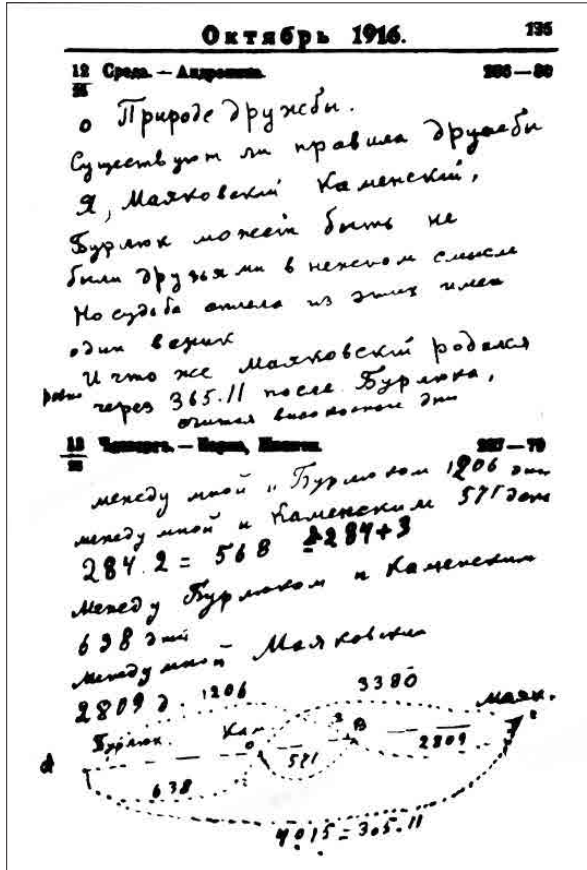 Октябрь 1916. 135
12/25 Среда. — Андроника. 286—80
о Природе дружбы.
Существуют ли правила дружбы
Я, Маяковский Каменский,
Бурлюк может быть не
были друзьями в нежном смысле
Но судьба сплела из этих имен
один веник
И что же Маяковский родился
ровно через 365.11 после Бурлюка,
считая високосные дни
13/26 Четверг. — Карпа, 287—79
между мной и Бурлюком 1206 дней
между мной и Каменским 571 день
284.2 = 568 =284+3
Между Бурлюком и Каменским
638 дней
Между мной Маяковским
2809 д. 1206 3380 маяк.
Бурлюк. Кам. B 2809
571
638
4015=365.11